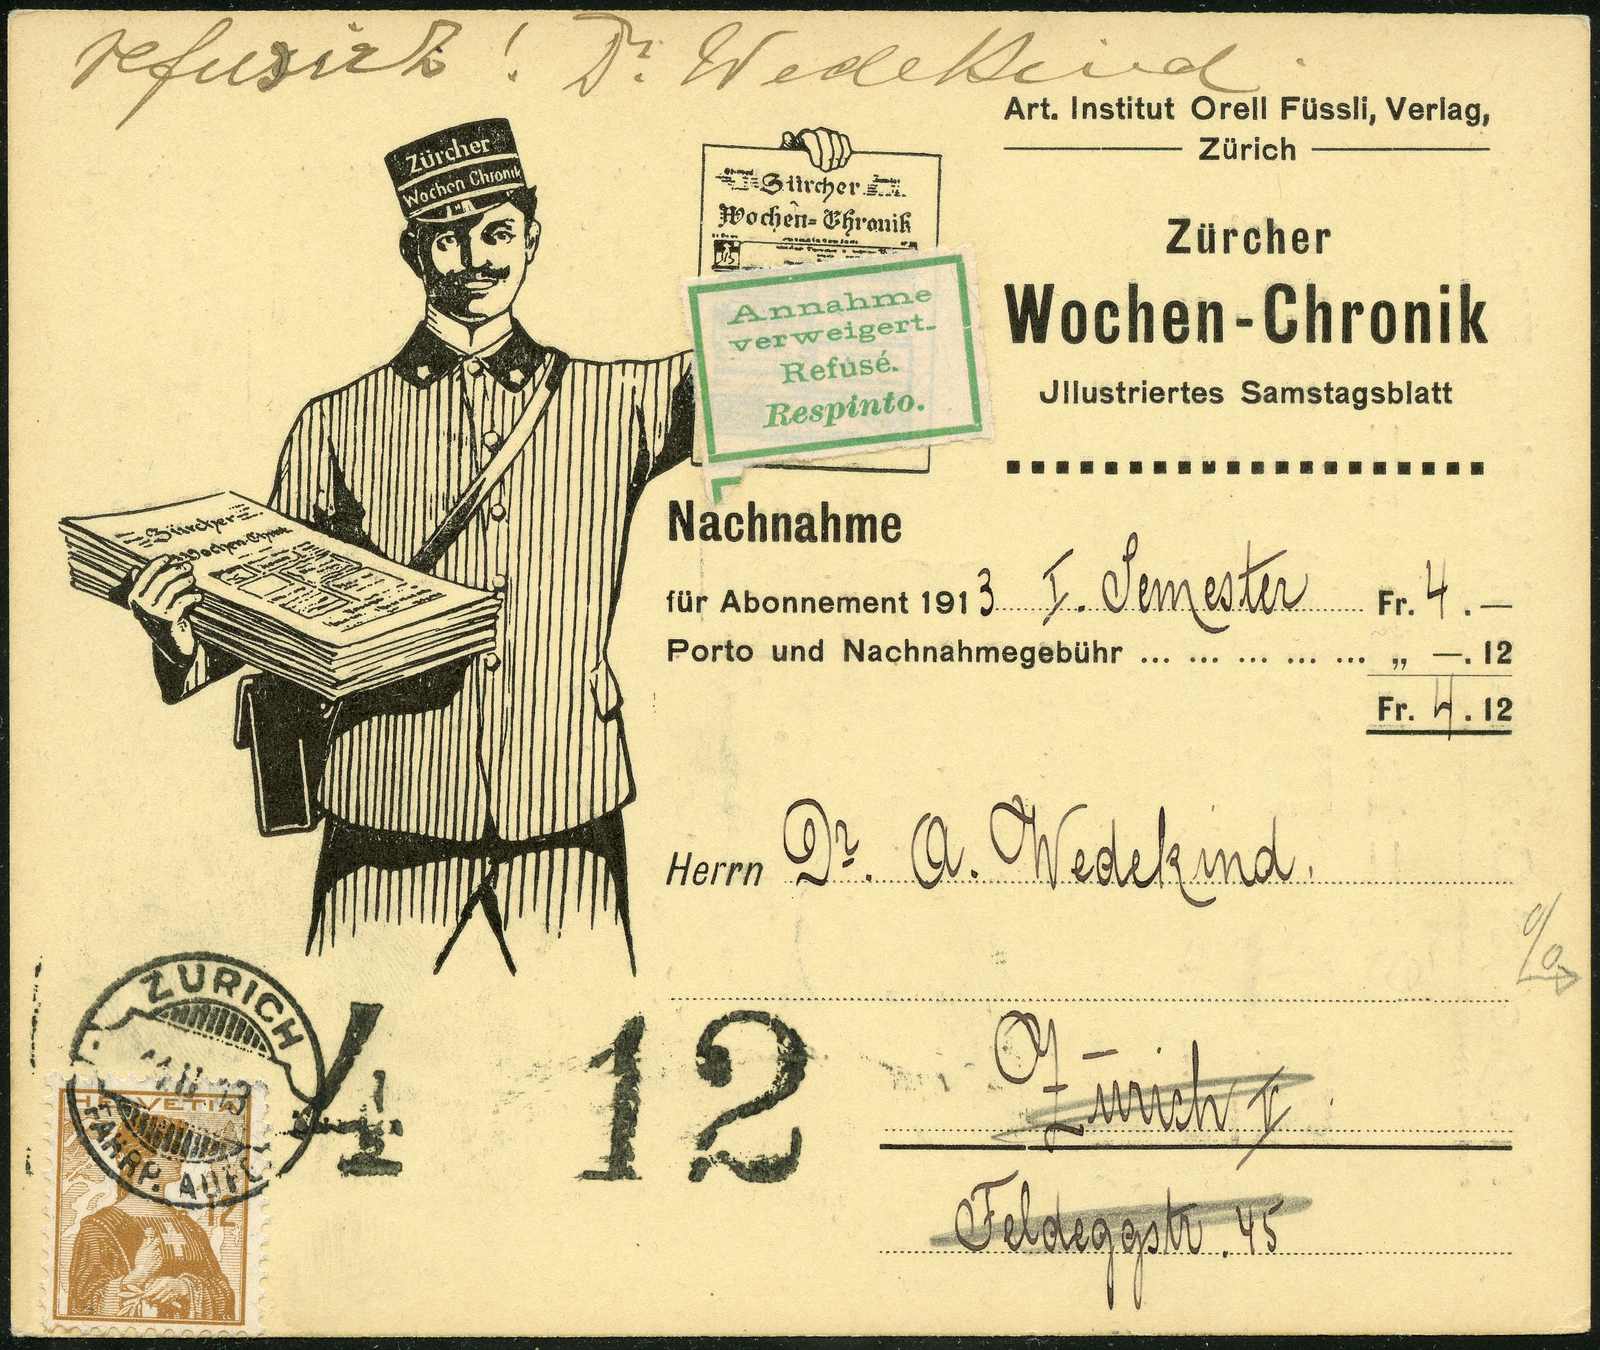 refusirt! Dr. Wedekind.
Art. Institut Orell Füssli, Verlag,
Zürich
Zürcher
Wochen Chronik
Zürcher
Wochen-Chronik
Zürcher
Wochen-Chronik
Jllustriertes Samstagsblatt
Annahme
verweigert.
Refusé.
Respinto.
Zürcher
Wochen-Chronik
Nachnahme
für Abonnement 1913 I. Semester Fr. 4.—
Porto und Nachnahmegebühr ... ... ... ... ... „ —.12
Fr. 4.12
Herrn Dr. A. Wedekind.
Zürich V.
Feldeggstr. 45
4 12
ZÜRICH
FAHRP. AUFG.
HELVETIA
12